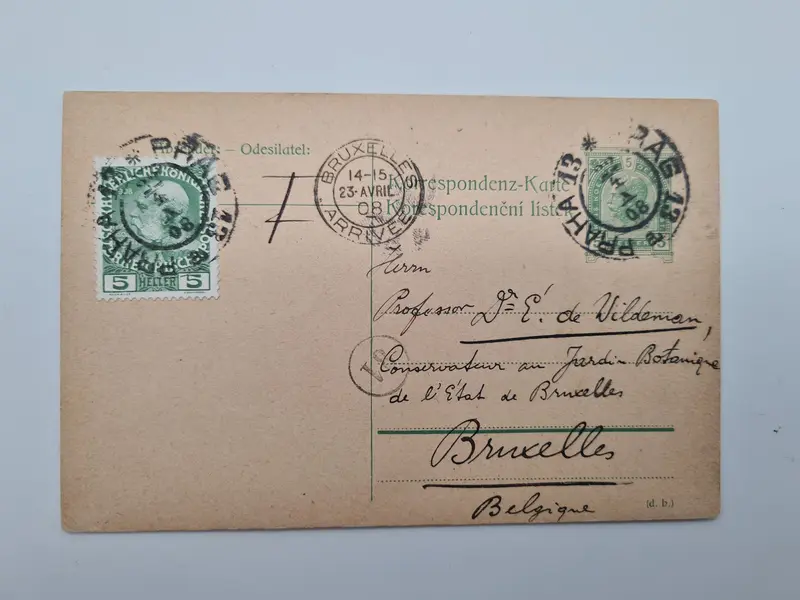 – Odesilatel:
BRUXELLES
14-15
23·AVRIL
08
ARRIVEE
PRAG 13
PRAHA 13
08
5 HELLER 5
Korrespondenz-Karte
Korespondenční lístek
PRAG 13
PRAHA 13
08
5
Herrn
Professor Dr É. de Wildeman,
Conservateur au Jardin Botanique
de l'État de Bruxelles
Bruxelles
Belgique
(d. b.)